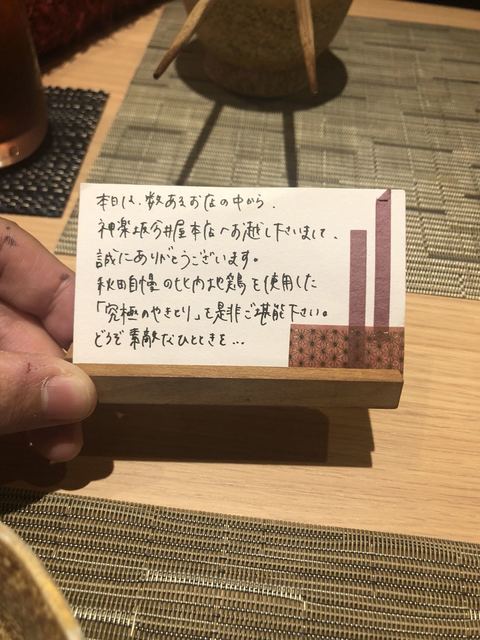 本日は、数あるお店の中から、
神楽坂今井屋本店へお越し下さいまして、
誠にありがとうございます。
秋田自慢の比内地鶏を使用した
「究極のやきとり」を是非ご堪能下さい。
どうぞ素敵なひとときを…